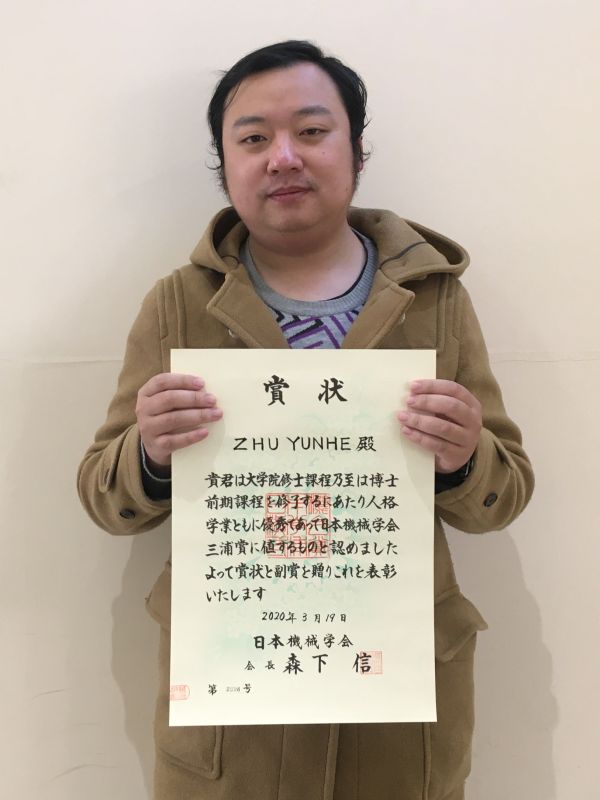 賞状
ZHU YUNHE 殿
貴君は大学院修士課程乃至は博士
前期課程を修了するにあたり人格
学業ともに優秀であって日本機械学会
三浦賞に値するものと認めました
よって賞状と副賞を贈りこれを表彰
いたします
2020年3月19日
日本機械学会
会長 森下 信
第 号